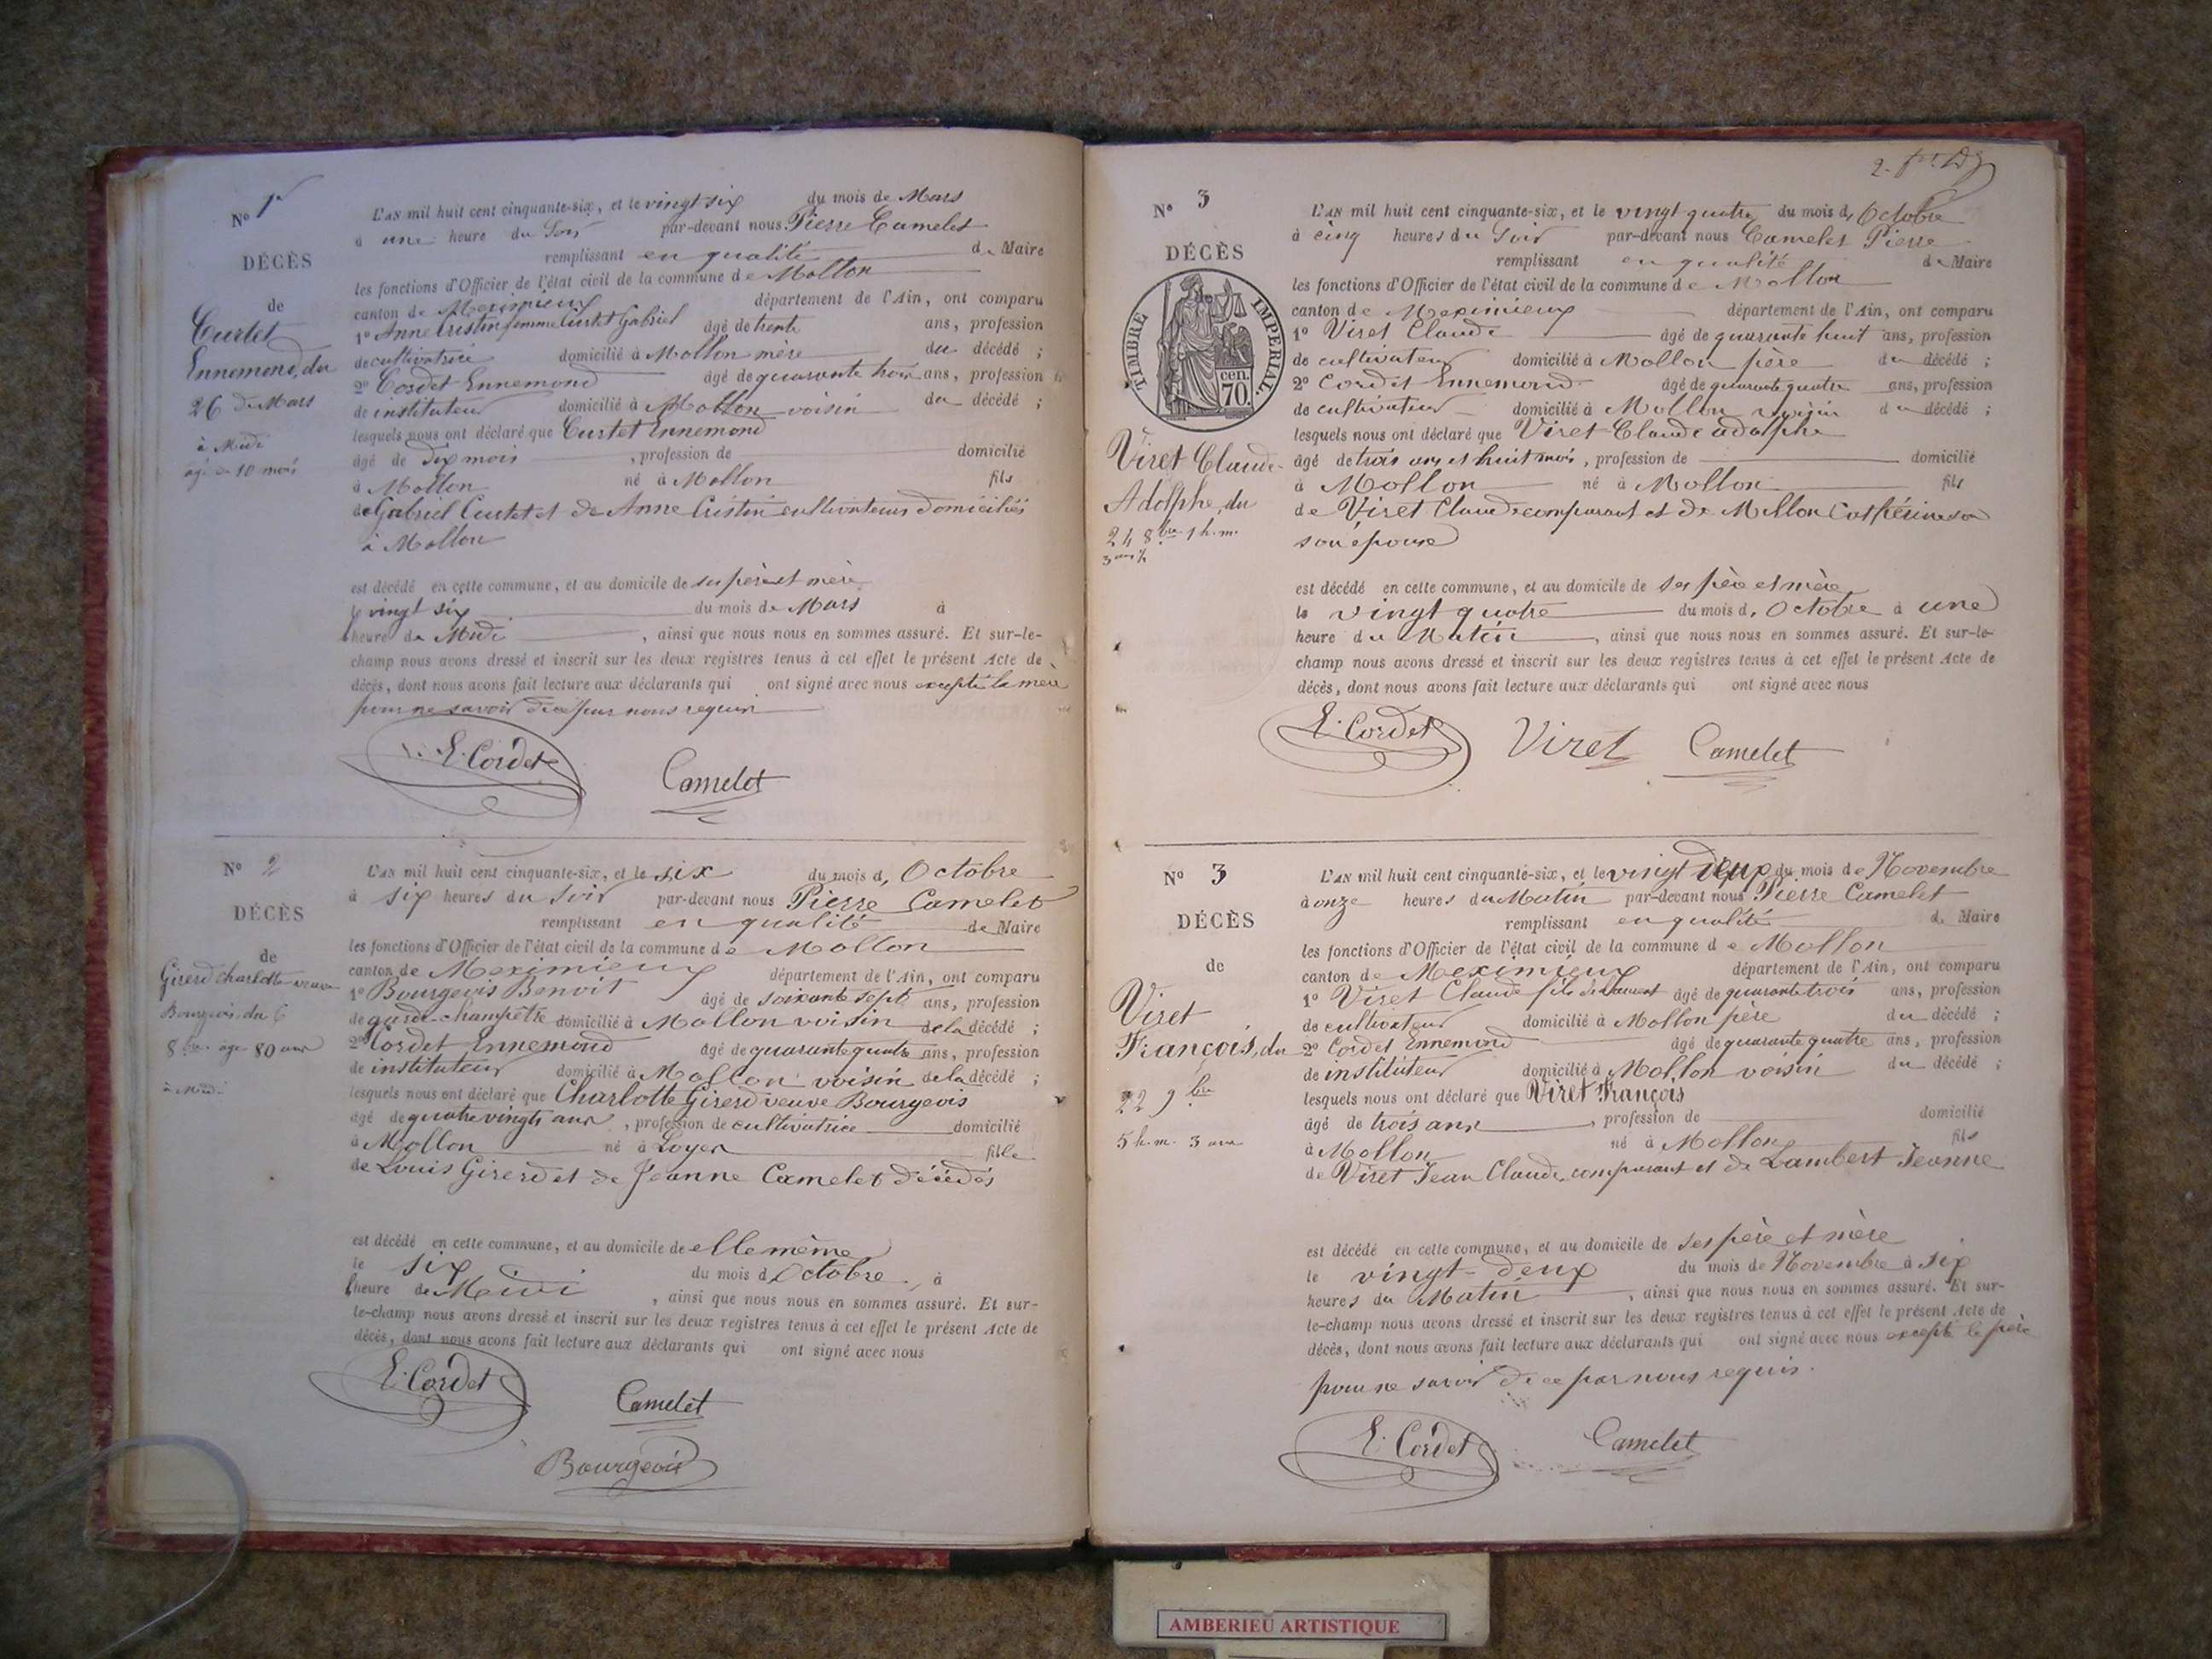 No 1er
DÉCÈS
de
Curtet
Ennemond, du
26 de Mars
à Midi
agé de 10 mois
L'AN mil huit cent cinquante-six, et le vingt six du mois de Mars
à une heure du Soir par-devant nous Pierre Camelet
remplissant en qualité de Maire
les fonctions d'Officier de l'état civil de la commune de Mollon
canton de Meximieux département de l'Ain, ont comparu
1º Anne Cristin femme Curtet Gabriel âgé de trente ans, profession
de cultivatrice domicilié à Mollon mère du décédé ;
2º Cordet Ennemond âgé de quarante trois ans, profession
de instituteur domicilié à Mollon voisin du décédé ;
lesquels nous ont déclaré que Curtet Ennemond
âgé de dix mois , profession de domicilié
à Mollon né à Mollon fils
de Gabriel Curtet et de Anne Cristin cultivateurs domiciliés
à Mollon
est décédé en cette commune, et au domicile de ses père et mère
le vingt six du mois de Mars à
heure de Midi , ainsi que nous nous en sommes assuré. Et sur-le-
champ nous avons dressé et inscrit sur les deux registres tenus à cet effet le présent Acte de
décès, dont nous avons fait lecture aux déclarants qui ont signé avec nous excepté la mère
pour ne savoir de ce par nous requis
E. Cordet
Camelet
No 2
DÉCÈS
de
Girerd Charlotte veuve
Bourgeois, du 6
8bre age 80 ans
à Midi
L'AN mil huit cent cinquante-six, et le six du mois d, Octobre
à six heures du Soir par-devant nous Pierre Camelet
remplissant en qualité de Maire
les fonctions d'Officier de l'état civil de la commune de Mollon
canton de Meximieux département de l'Ain, ont comparu
1º Bourgeois Benoit âgé de soixante sept ans, profession
de garde-champêtre domicilié à Mollon voisin de la décédé ;
2º Cordet Ennemond âgé de quarante quatre ans, profession
de instituteur domicilié à Mollon voisin de la décédé ;
lesquels nous ont déclaré que Charlotte Girerd veuve Bourgeois
âgé de quatre vingts ans , profession de cultivatrice domicilié
à Mollon né à Loyes fille
de Louis Girerd et de Jeanne Camelet décédés
est décédé en cette commune, et au domicile de elle même
le six du mois d, Octobre, à
heure de Midi , ainsi que nous nous en sommes assuré. Et sur-
le-champ nous avons dressé et inscrit sur les deux registres tenus à cet effet le présent Acte de
décès, dont nous avons fait lecture aux déclarants qui ont signé avec nous
E. Cordet
Camelet
Bourgeois
2.
No 3
DÉCÈS
TIMBRE IMPERIAL
cen.
70.
Viret Claude-
Adolphe, du
24 8bre 1 h. m.
3 ans ½
L'AN mil huit cent cinquante-six, et le vingt quatre du mois d, Octobre
à cinq heures du Soir par-devant nous Camelet Pierre
remplissant en qualité de Maire
les fonctions d'Officier de l'état civil de la commune de Mollon
canton de Meximieux département de l'Ain, ont comparu
1º Viret Claude âgé de quarante huit ans, profession
de cultivateur domicilié à Mollon père du décédé ;
2º Cordet Ennemond âgé de quarante quatre ans, profession
de cultivateur domicilié à Mollon voisin du décédé ;
lesquels nous ont déclaré que Viret Claude adolphe
âgé de trois ans et huit mois , profession de domicilié
à Mollon né à Mollon fils
de Viret Claude comparant et de Mollon Cathérine sa
son épouse
est décédé en cette commune, et au domicile de ses père et mère
le vingt quatre du mois d, Octobre à une
heure du Matin , ainsi que nous nous en sommes assuré. Et sur-le-
champ nous avons dressé et inscrit sur les deux registres tenus à cet effet le présent Acte de
décès, dont nous avons fait lecture aux déclarants qui ont signé avec nous
E. Cordet Viret Camelet
No 3
DÉCÈS
de
Viret
François, du
22 9bre
5 h. m. 3 ans
L'AN mil huit cent cinquante-six, et le vingt deux du mois de Novembre
à onze heures du Matin par-devant nous Pierre Camelet
remplissant en qualité de Maire
les fonctions d'Officier de l'état civil de la commune de Mollon
canton de Meximieux département de l'Ain, ont comparu
1º Viret Claude fils de Laurent âgé de quarante trois ans, profession
de cultivateur domicilié à Mollon père du décédé ;
2º Cordet Ennemond âgé de quarante quatre ans, profession
de instituteur domicilié à Mollon voisin du décédé ;
lesquels nous ont déclaré que Viret François
âgé de trois ans , profession de domicilié
à Mollon né à Mollon fils
de Viret Jean Claude comparant et de Lambert Jeanne
est décédé en cette commune, et au domicile de ses père et mère
le vingt-deux du mois de Novembre à six
heures du Matin , ainsi que nous nous en sommes assuré. Et sur-
le-champ nous avons dressé et inscrit sur les deux registres tenus à cet effet le présent Acte de
décès, dont nous avons fait lecture aux déclarants qui ont signé avec nous excepté le père
pour ne savoir de ce par nous requis.
E. Cordet Camelet
AMBERIEU ARTISTIQUE